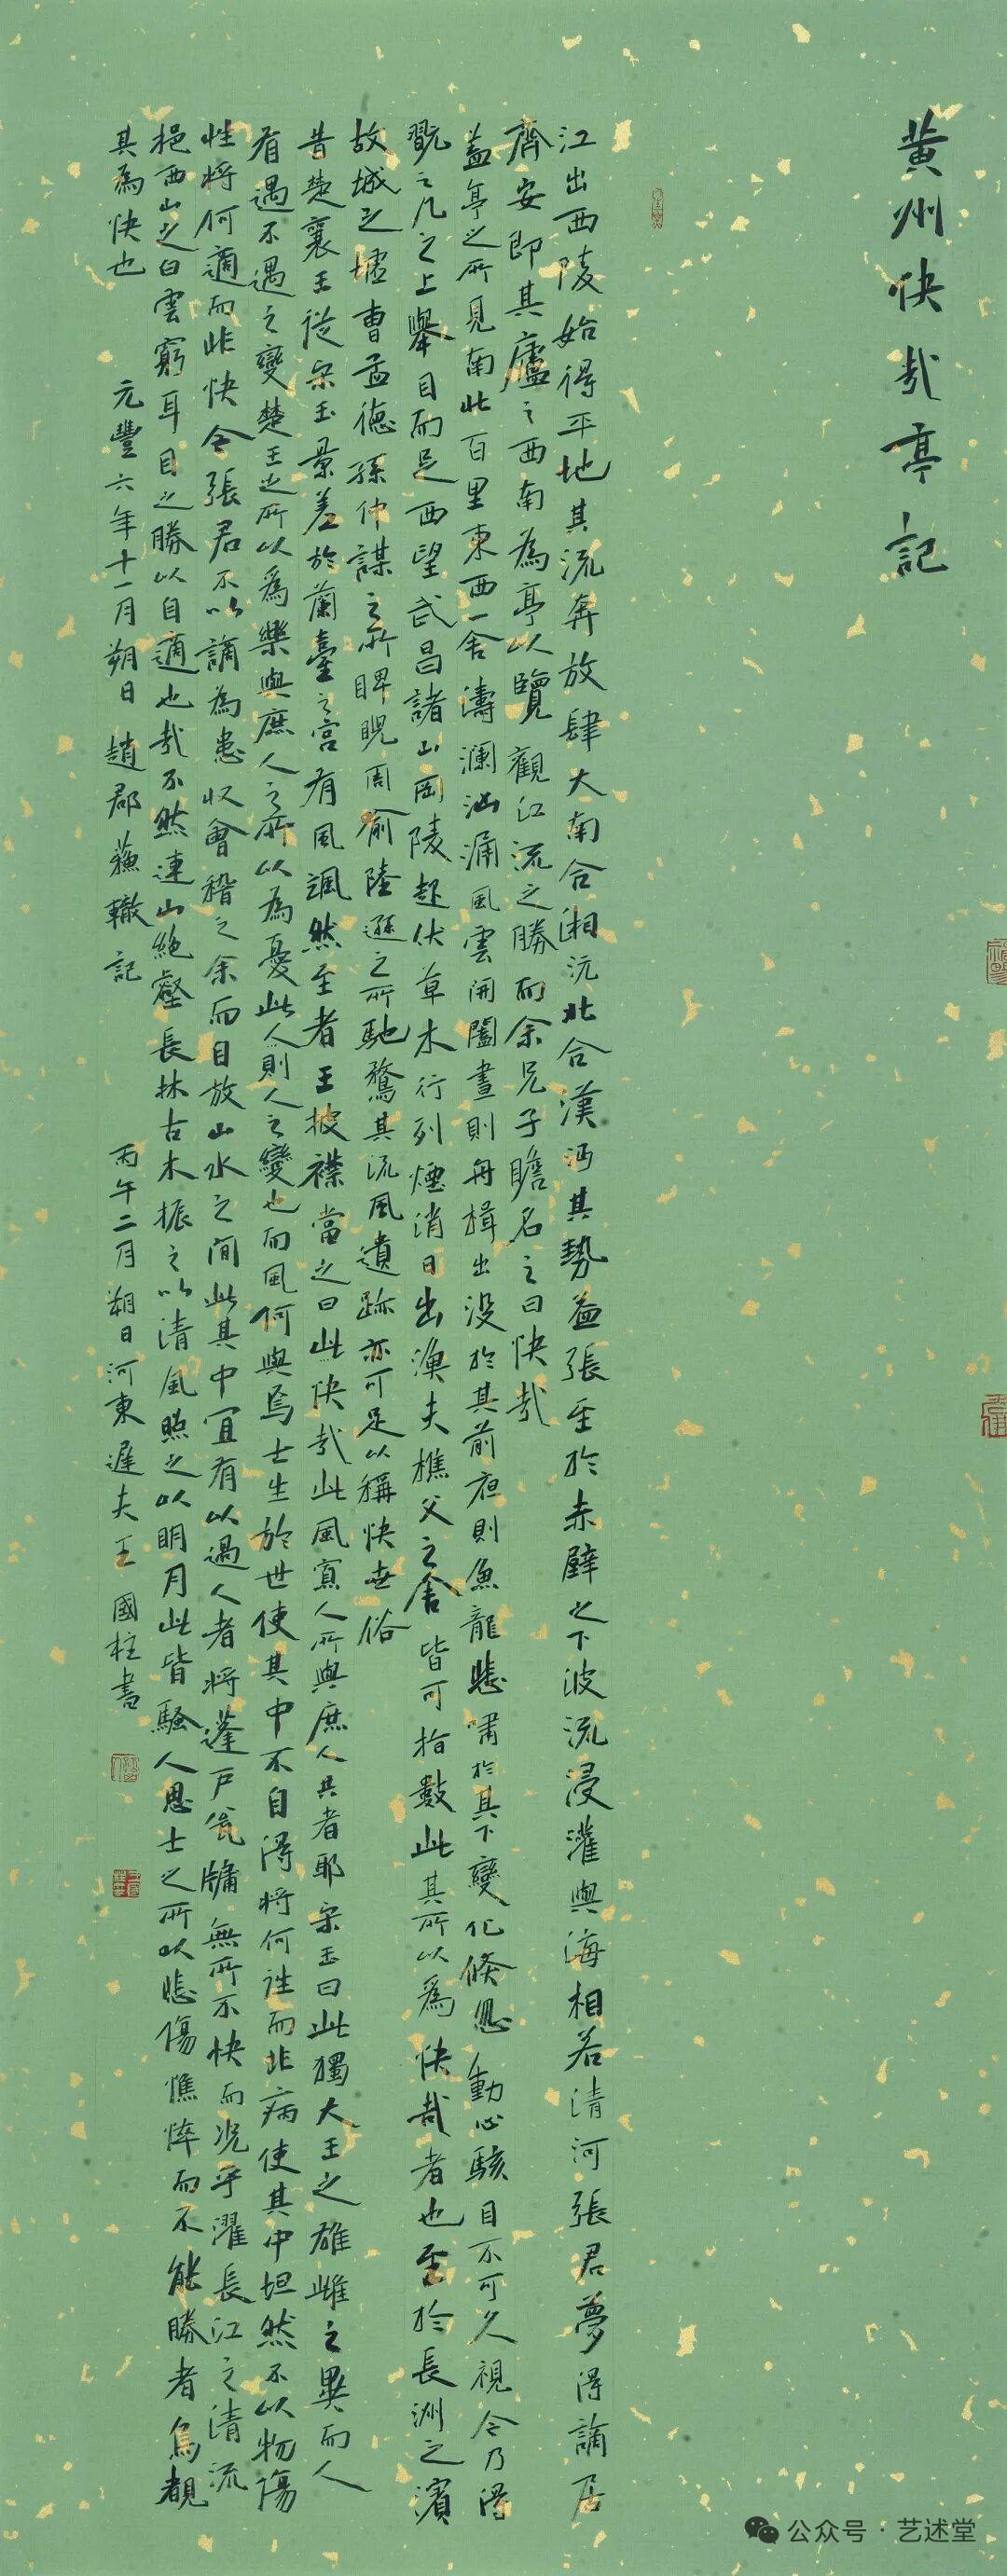 黄州快哉亭記
江出西陵始得平地其流奔放肆大南合湘沅北合漢沔其勢益張至於赤壁之下波流浸灌與海相若清河張君夢得謫居
齊安即其廬之西南為亭以覽觀江流之勝而余兄子瞻名之曰快哉
蓋亭之所見南北百里東西一舍濤瀾洶涌風雲開闔晝則舟楫出沒於其前夜則魚龍悲嘯於其下變化倏忽動心駭目不可久視今乃得
翫之几之上舉目而足西望武昌諸山岡陵起伏草木行列煙消日出漁夫樵父之舍皆可指數此其所以為快哉者也至於長洲之濱
故城之墟曹孟德孫仲謀之所睥睨周俞陸遜之所馳騖其流風遺跡亦可足以稱快世俗
昔楚襄王從宋玉景差於蘭臺之宮有風颯然至者王披襟當之曰此快哉此風寡人所與庶人共者耶宋玉曰此獨大王之雄雌之異而人
有遇不遇之變楚王之所以為樂與庶人之所以為憂此人則人之變也而風何與焉士生於世使其中不自得將何往而非病使其中坦然不以物傷
性將何適而非快今張君不以謫為患收會稽之余而自放山水之間此其中宜有以過人者將蓬戶瓮牖無所不快而況乎濯長江之清流
挹西山之白雲窮耳目之勝以自適也哉不然連山絕壑長林古木振之以清風照之以明月此皆騷人思士之所以悲傷憔悴而不能勝者烏覩
其為快也 元豐六年十一月朔日 趙郡蘇轍記 丙午二月朔日河東遲夫王國柱書
公众号·艺述堂